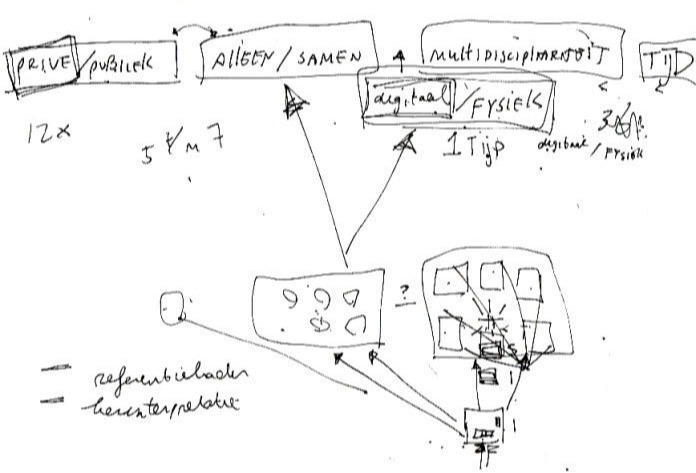 PRIVE / PUBLIEK
ALLEEN / SAMEN
MULTIDISCIPLINARITEIT
TIJD
digitaal / FYSIEK
12x
5 t/m 7
1 Tijp
digitaal / FYSIEK
?
referentiekader
herinterpretatie